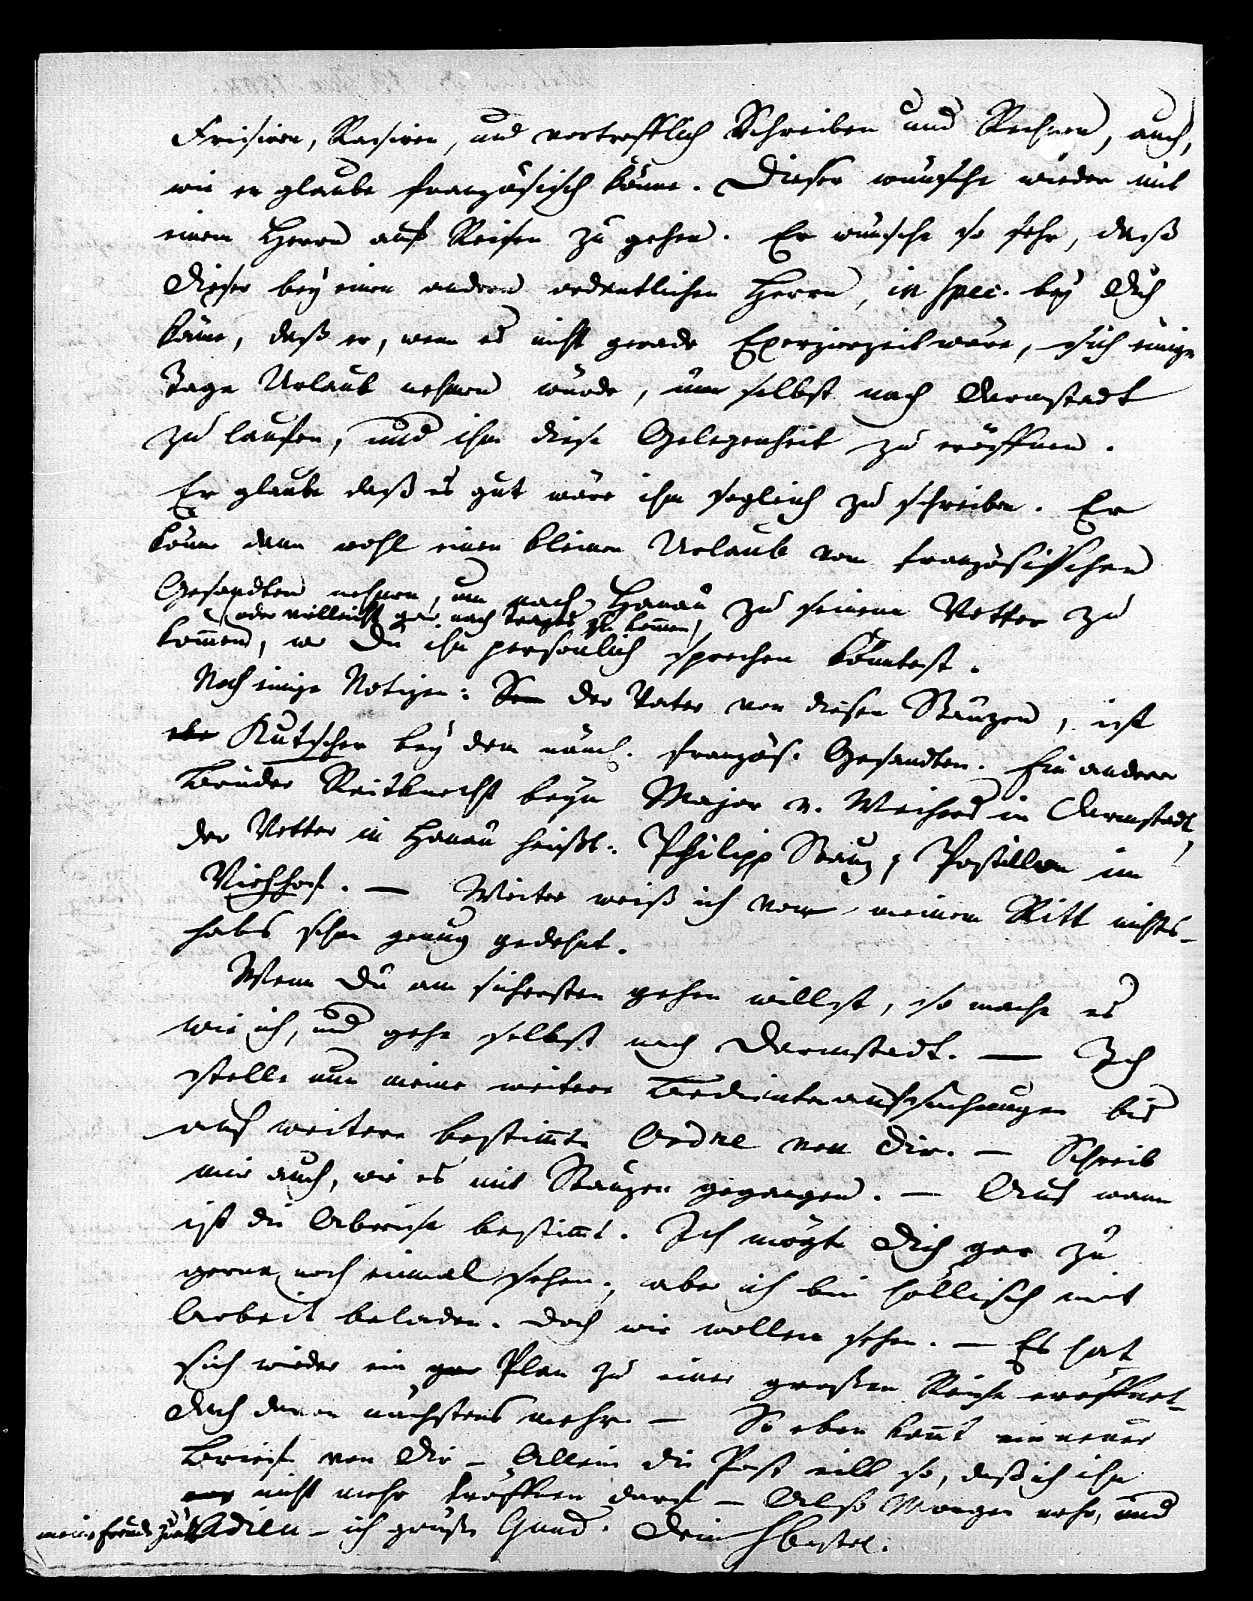 Frisiren, Rasiren, und vortrefflich Schreiben und Rechnen, auch,
wie er glaube französisch könne. Dieser wünsche wieder mit
einem Herrn auf Reisen zu gehen. Er wünsche so sehr, daß
dieser bey einen andern ordentlichen Herrn, in spec. bey Dich
käme, daß er, wenn es nicht gerade Exerzierzeit wäre, sich einige
Tage Urlaub nehmen würde, um selbst nach Darmstadt
zu laufen, und ihm diese Gelegenheit zu eröffnen.
Er glaube daß es gut wäre ihm sogleich zu schreiben. Er
könne dann wohl einen kleinen Urlaub vom französischen
Gesandten nehmen, um nach Hanau zu seinem Vetter zu
(oder vielleicht gar nach Trages zu kommen)
kom̄en, wo Du ihn persönlich sprechen könntest.
Noch einige Notizen: der Vater von diesen Stanzen, ist
Kutscher bey dem näml. französ. Gesandten. Ein anderer
Bruder Reitknecht beym Major v. Weihers in Darmstadt,
der Vetter in Hanau heißt: Philipp Stanz, Postillon im
Viehhof. — Weiter weiß ich von meinem Ritt nichts–
habs schon genug gedehnt.
Wenn Du am sichersten gehen willst, so mache es
wie ich, und gehe selbst nach Darmstadt. — Ich
stelle nun meine weitere Bedientenaufsuchungen bis
auf weitere bestim̄te Ordre von Dir. — Schreib
mir auch, wie es mit Stanzen gegangen. — Auf wann
ist die Abreise bestim̄t. Ich mögte Dich gar zu
gerne noch einmal sehen, aber ich bin höllisch mit
Arbeit beladen. Doch wir wollen sehen. — Es hat
sich wieder ein Plan zu einer großen Reise eröffnet–
doch davon nächstens mehr — So eben kom̄t ein neuer
Brief von Dir – Allein die Post eilt so, daß ich ihn
nicht mehr eröffnen darf – Also Morgen mehr, und
Adieu – ich grüße Dein